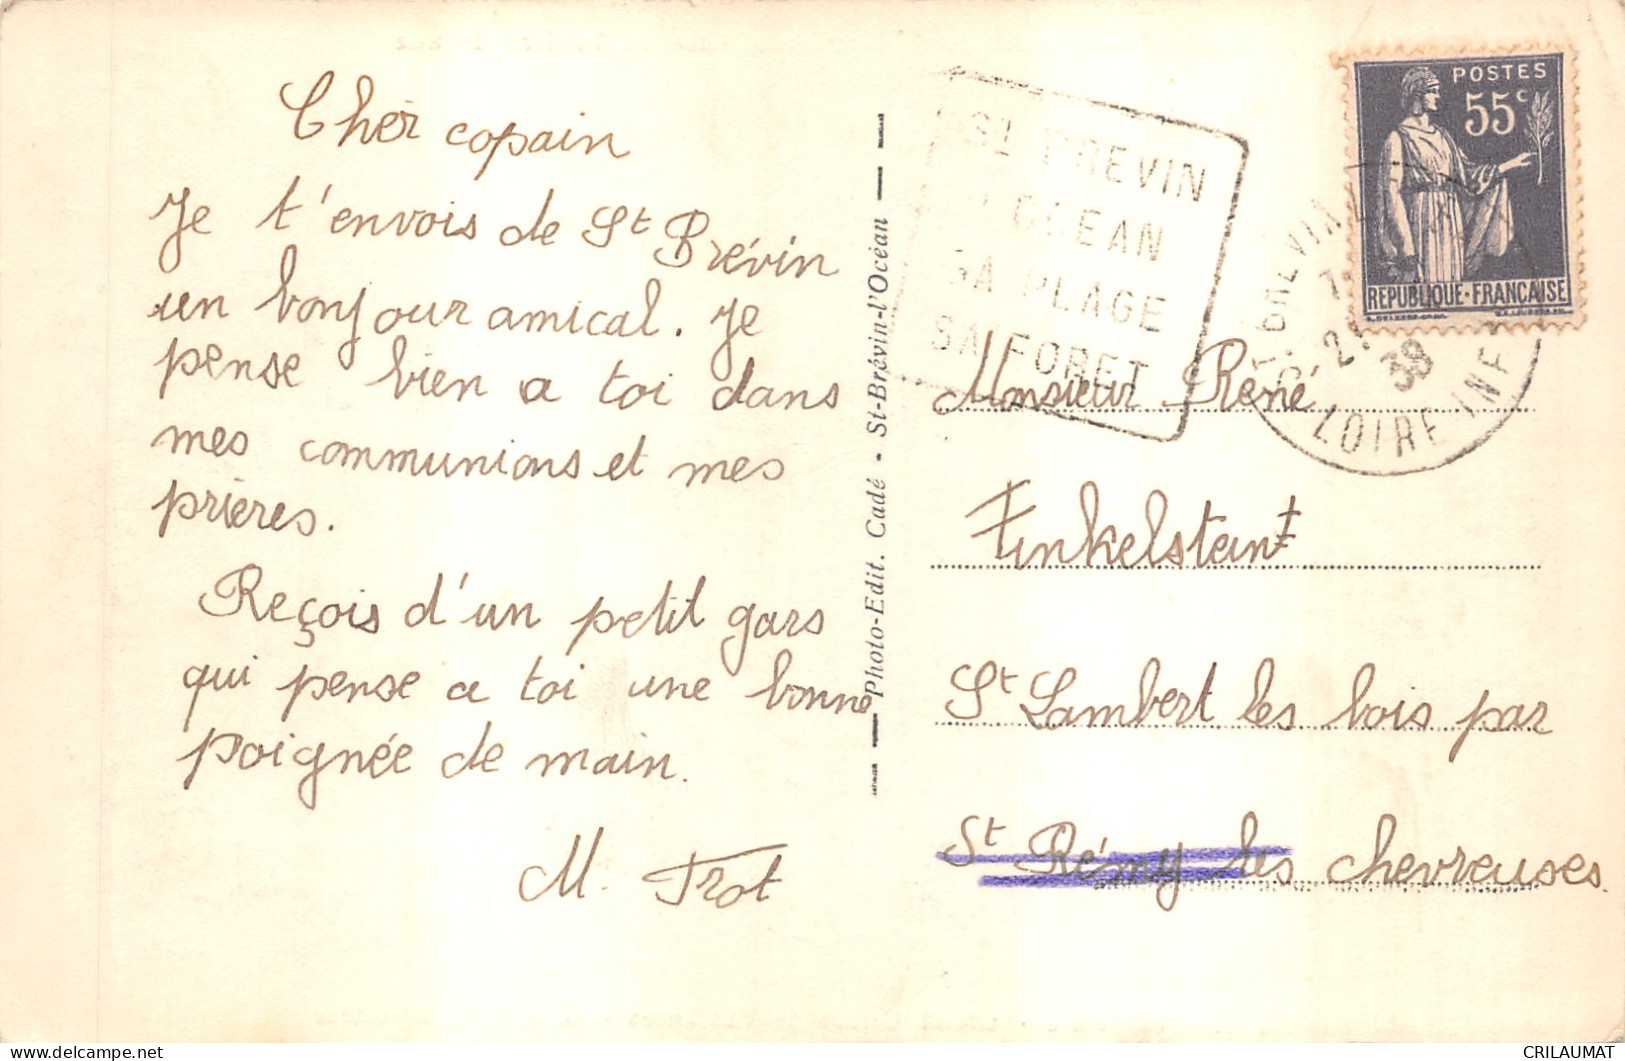 Cher copain
Je t'envois de St Brévin
un bonjour amical. Je
pense bien a toi dans
mes communions et mes
prieres.
Reçois d'un petit gars
qui pense a toi une bonne
poignée de main.
M. Trot
Photo-Edit. Cadé - St-Brévin-l'Océan
ST BREVIN
OCEAN
SA PLAGE
SA FORET
POSTES
55c
REPUBLIQUE-FRANÇAISE
38
LOIRE INF
Monsieur René
Finkelstein
St Lambert les bois par
St Rémy les chevreuses.
CRILAUMAT